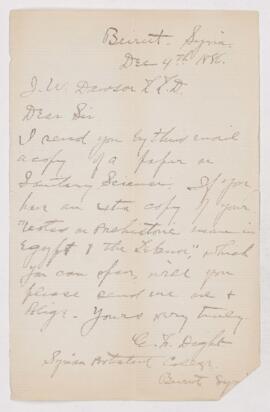 Beirut. Syria.
Dec 4th 1886.
J. W. Dawson L L D.
Dear Sir
I send you by this mail
a copy of a paper on
Sanitary Science. If you
have an extra copy of your
"notes on Prehistoric man in
Egypt & the Lebanon", which
you can spare, will you
please send me one &
oblige. Yours very truly
Syrian Protestant College
Beirut Syria